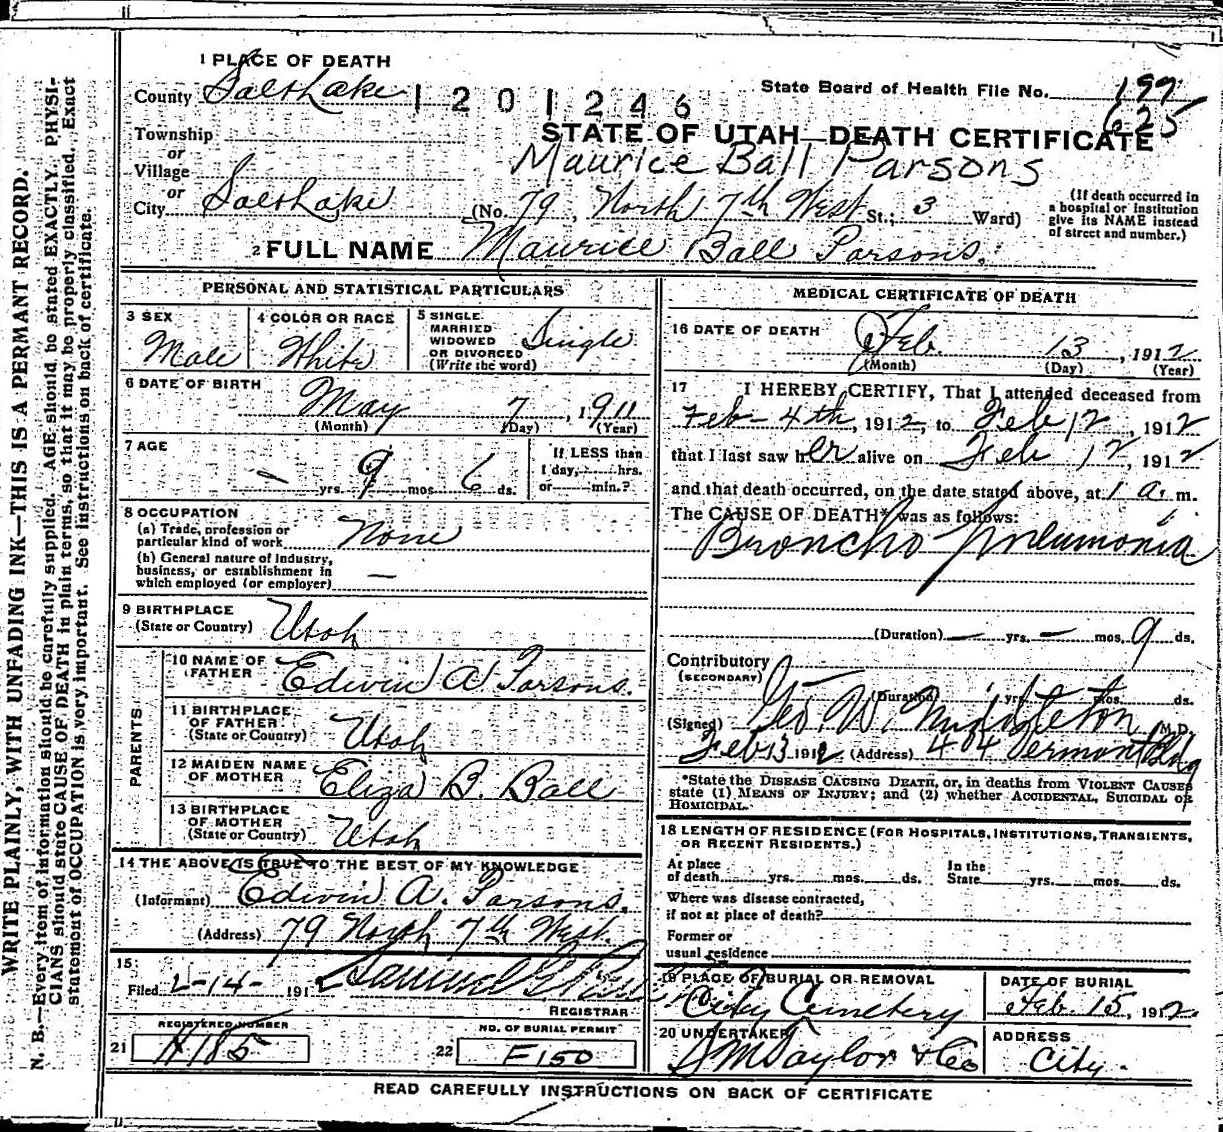 1 PLACE OF DEATH
County Salt Lake
1201246
State Board of Health File No. 197
625
STATE OF UTAH—DEATH CERTIFICATE
Maurice Ball Parsons
Township
or
Village
or
City Salt Lake
(No. 79, North 7th West St.; 3 Ward)
(If death occurred in
a hospital or institution
give its NAME instead
of street and number.)
2 FULL NAME Maurice Ball Parsons.
PERSONAL AND STATISTICAL PARTICULARS
3 SEX
Male
4 COLOR OR RACE
White
5 SINGLE
MARRIED
WIDOWED
OR DIVORCED
(Write the word)
Single
6 DATE OF BIRTH
May 7, 1911
(Month) (Day) (Year)
7 AGE
— yrs. 9 mos. 6 ds.
If LESS than
1 day, hrs.
or min.?
8 OCCUPATION
(a) Trade, profession or
particular kind of work None
(b) General nature of industry,
business, or establishment in
which employed (or employer) —
9 BIRTHPLACE
(State or Country) Utah
PARENTS
10 NAME OF
FATHER Edwin A Parsons.
11 BIRTHPLACE
OF FATHER
(State or Country) Utah
12 MAIDEN NAME
OF MOTHER Eliza B. Ball
13 BIRTHPLACE
OF MOTHER
(State or Country) Utah
14 THE ABOVE IS TRUE TO THE BEST OF MY KNOWLEDGE
(Informant) Edwin A. Parsons.
(Address) 79 North 7th West.
15
Filed 2-14- 191
Samuel G
REGISTRAR
REGISTERED NUMBER
21 H185
NO. OF BURIAL PERMIT
22 E150
MEDICAL CERTIFICATE OF DEATH
16 DATE OF DEATH
Feb. 13, 1912
(Month) (Day) (Year)
17 I HEREBY CERTIFY, That I attended deceased from
Feb - 4th, 1912, to Feb 12, 1912
that I last saw her alive on Feb 12, 1912
and that death occurred, on the date stated above, at 1 a. m.
The CAUSE OF DEATH* was as follows:
Broncho Pneumonia
(Duration) — yrs. — mos. 9 ds.
Contributory
(SECONDARY)
(Duration) yrs. mos. ds.
(Signed) Geo. W. Middleton M.D.
Feb 13 1912 (Address) 404 Vermont Bldg
*State the DISEASE CAUSING DEATH, or, in deaths from VIOLENT CAUSES
state (1) MEANS OF INJURY; and (2) whether ACCIDENTAL, SUICIDAL OR
HOMICIDAL.
18 LENGTH OF RESIDENCE (FOR HOSPITALS, INSTITUTIONS, TRANSIENTS,
OR RECENT RESIDENTS.)
At place
of death yrs. mos. ds.
In the
State yrs. mos. ds.
Where was disease contracted,
if not at place of death?
Former or
usual residence
19 PLACE OF BURIAL OR REMOVAL
City Cemetery
DATE OF BURIAL
Feb. 15, 1912.
20 UNDERTAKER
S M Taylor & Co
ADDRESS
City.
READ CAREFULLY INSTRUCTIONS ON BACK OF CERTIFICATE
WRITE PLAINLY, WITH UNFADING INK—THIS IS A PERMANT RECORD.
N. B.—Every item of information should be carefully supplied. AGE should be stated EXACTLY. PHYSI-
CIANS should state CAUSE OF DEATH in plain terms, so that it may be properly classified. Exact
statement of OCCUPATION is very important. See instructions on back of certificate.